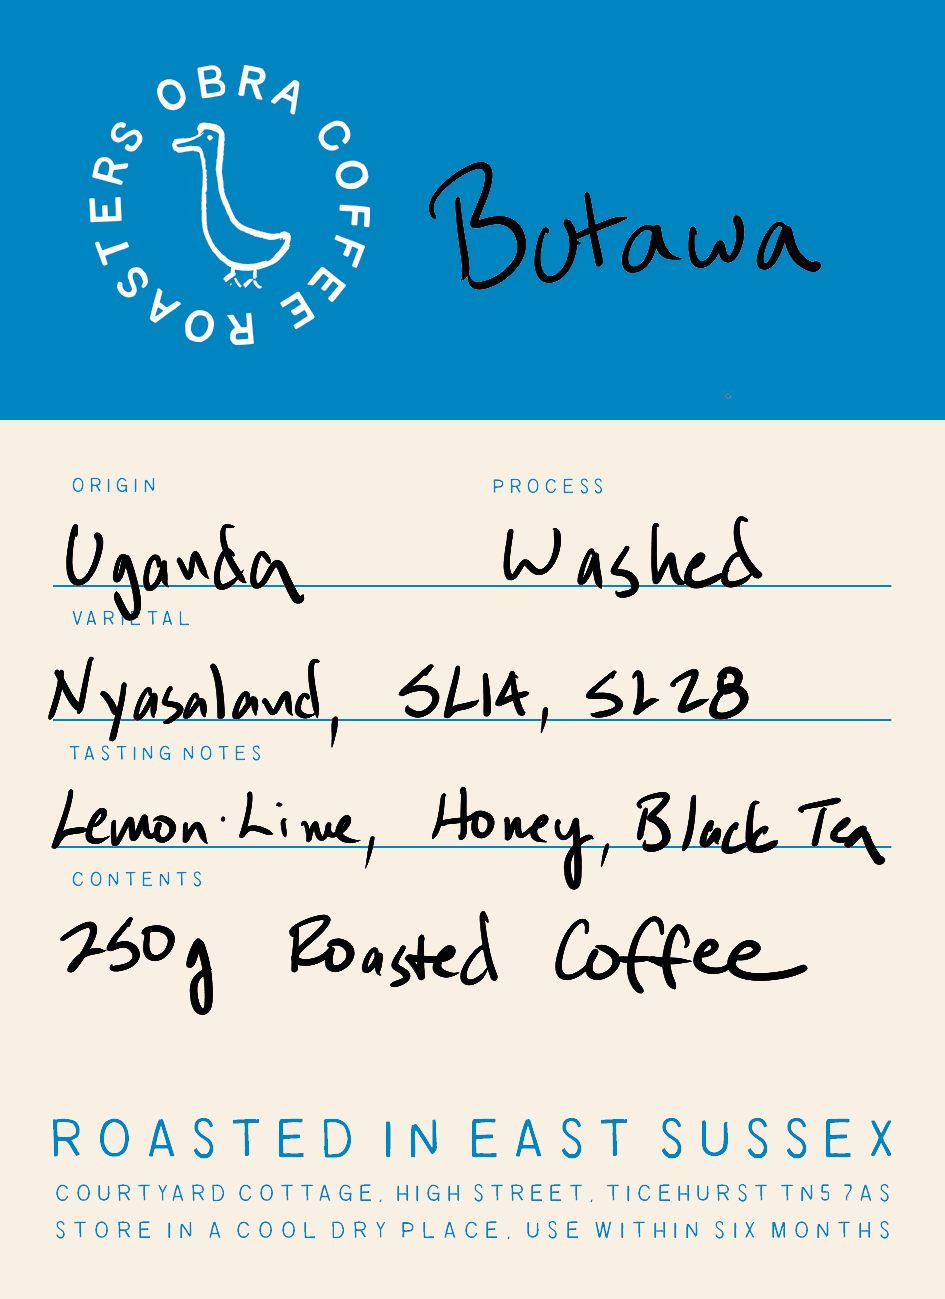 OBRA COFFEE ROASTERS
Butawa
ORIGIN PROCESS
Uganda Washed
VARIETAL
Nyasaland, SL14, SL28
TASTING NOTES
Lemon·Lime, Honey, Black Tea
CONTENTS
250g Roasted Coffee
ROASTED IN EAST SUSSEX
COURTYARD COTTAGE, HIGH STREET, TICEHURST TN5 7AS
STORE IN A COOL DRY PLACE, USE WITHIN SIX MONTHS